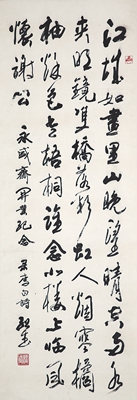 江城如畫里山晚望晴空兩水
夾明鏡雙橋落彩虹人烟寒橘
柚秋色老梧桐誰念北樓上臨風
懷謝公 永成齋開業紀念 李白詩